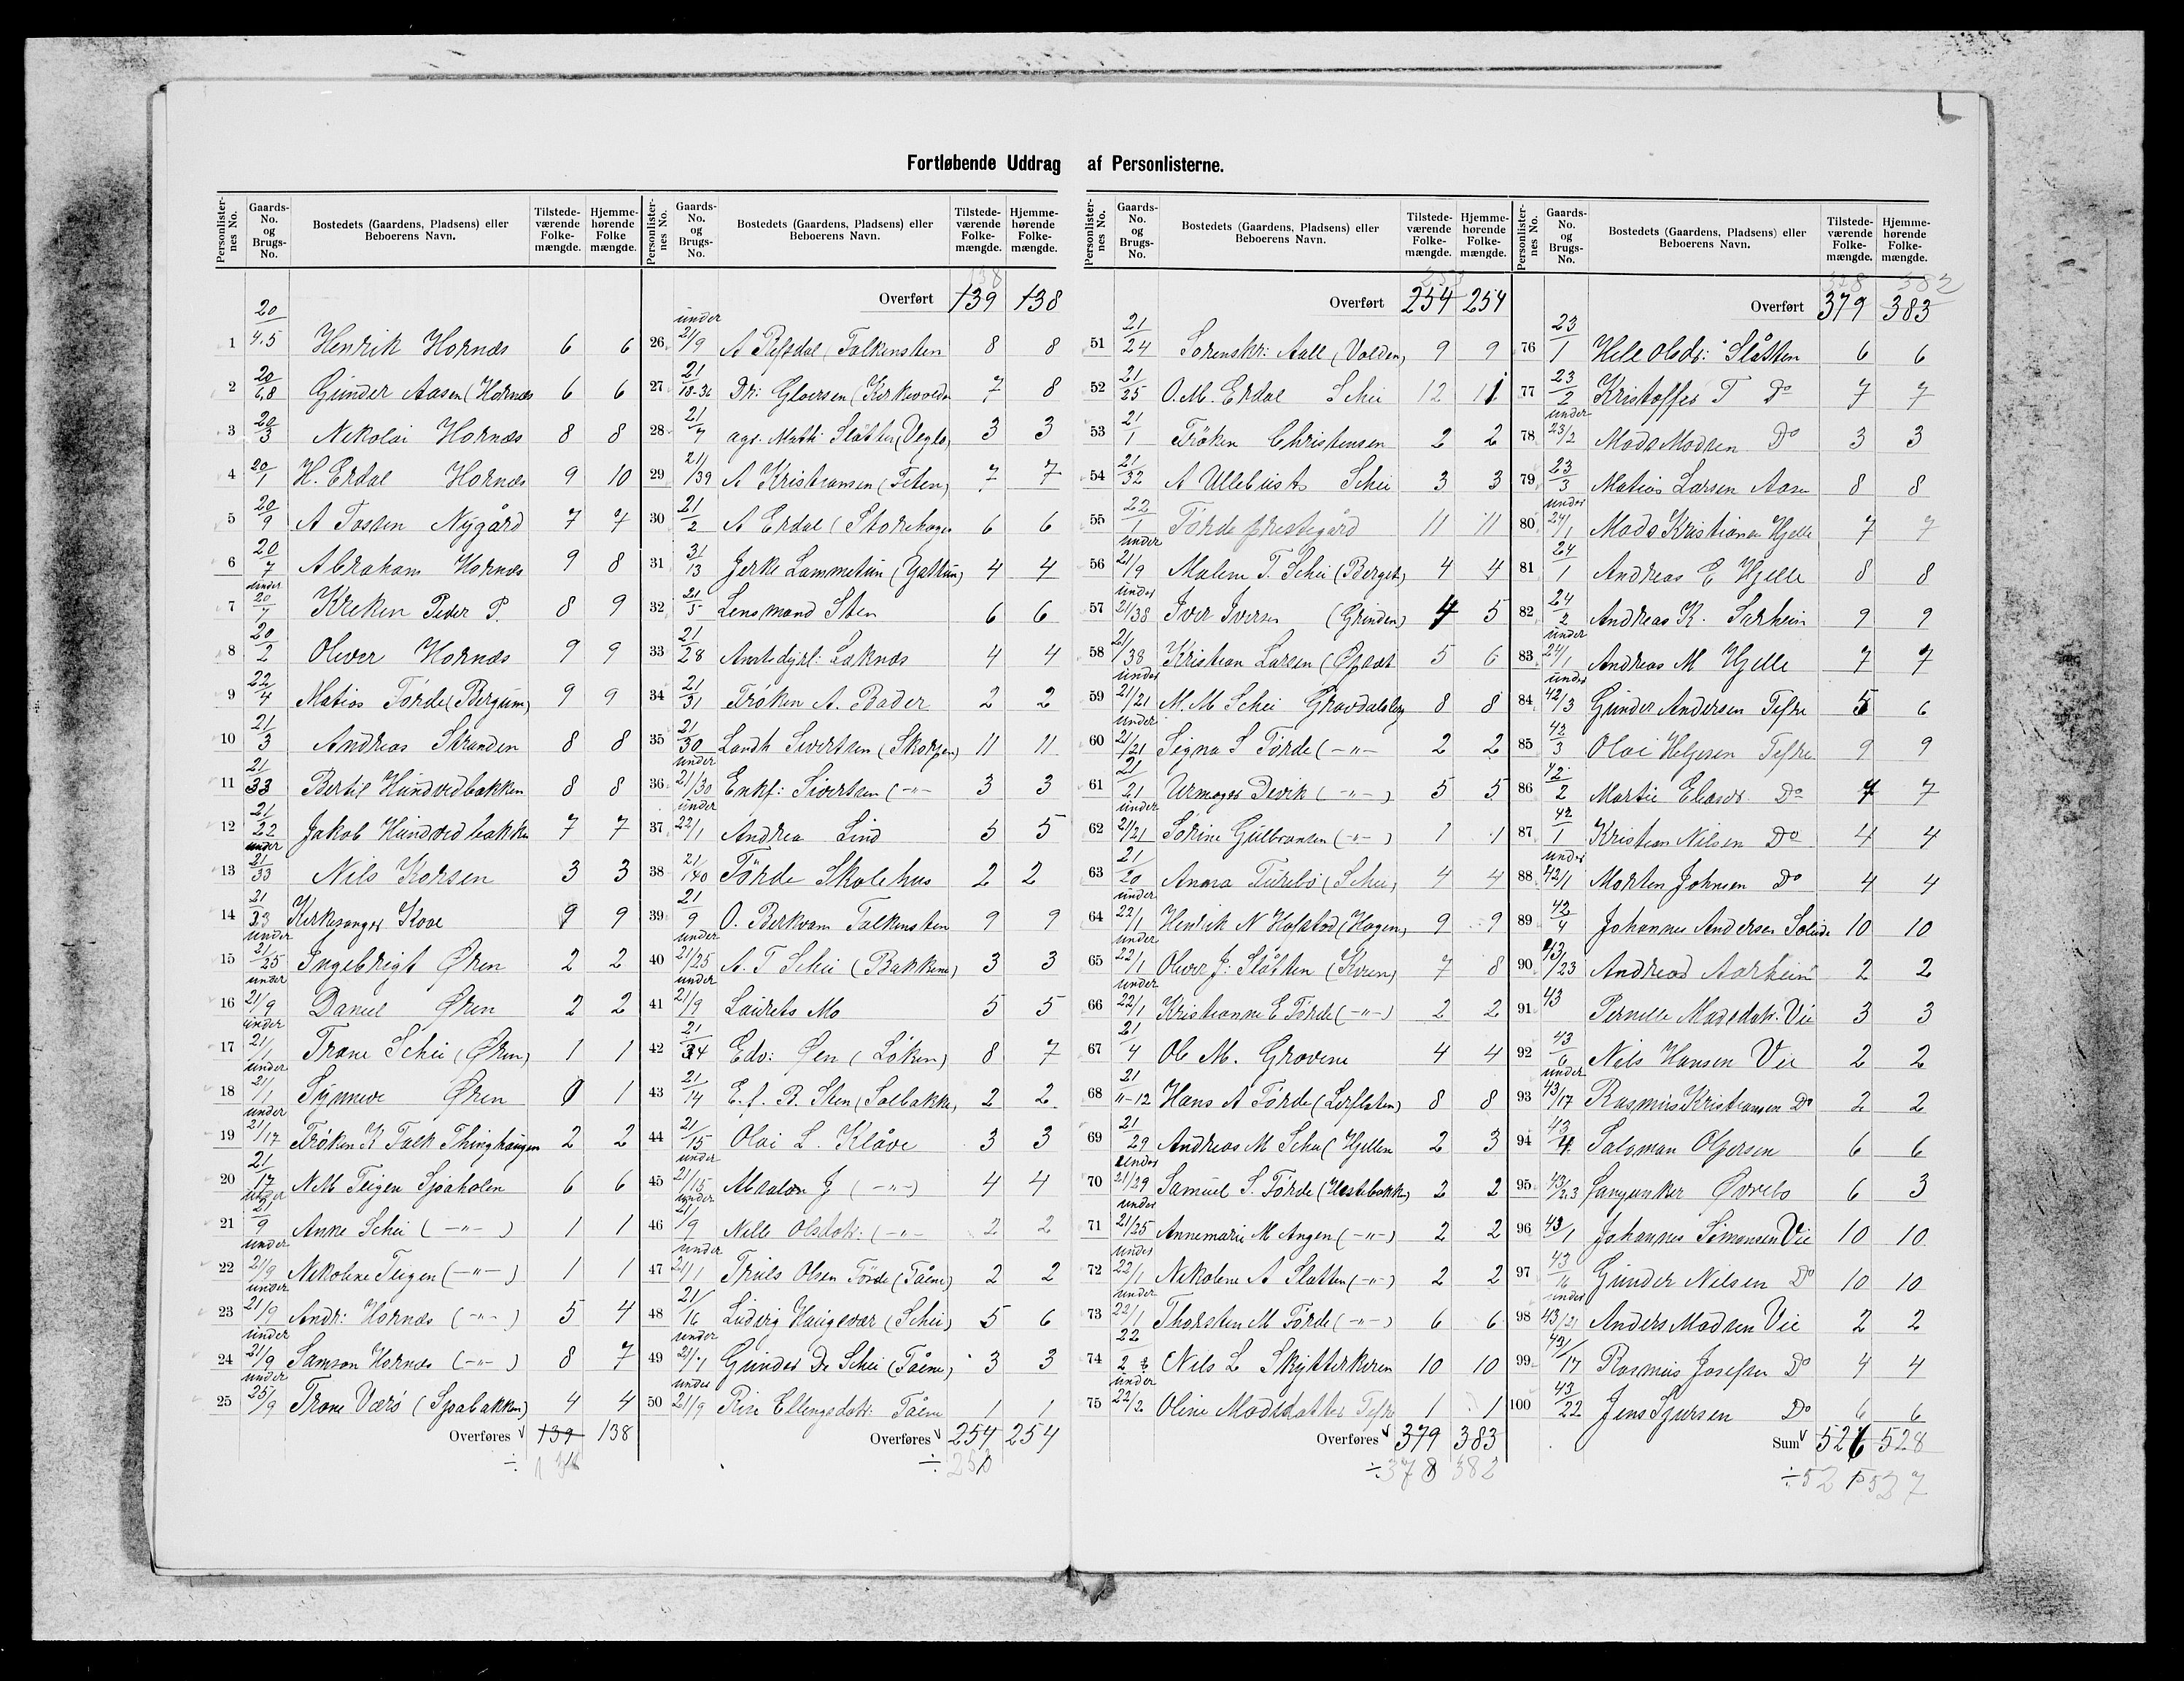 Fortløbende Uddrag af Personlisterne.
Personlister-nes No. Gaards-No. og Brugs-No. Bostedets (Gaardens, Pladsens) eller Beboerens Navn. Tilstede-værende Folke-mængde. Hjemme-hørende Folke mængde.
1 20/4.5 Henrik Hornæs 6 6
2 20/6.8 Gunder Aasen (Hornæs 6 6
3 20/3 Nikolai Hornæs 8 8
4 20/1 H. Erdal Hornæs 9 10
5 20/9 A Tosten Nygård 7 7
6 20/7 Abraham Hornæs 9 8
7 under 20/7 Kreken Peder P. 8 9
8 20/2 Oliver Hornæs 9 9
9 22/4 Matias Förde (Bergum) 9 9
10 21/3 Andreas Stranden 8 8
11 21/33 Bertil Hundvedbakken 8 8
12 21/22 Jakob Hundvedbakken 7 7
13 under 21/33 Nils Korsen 3 3
14 21/33 Kirkesanger Kaae 9 9
15 under 21/25 Ingebrigt Øren 2 2
16 under 21/9 Daniel Øren 2 2
17 under 21/1 Trane Schei (Øren) 1 1
18 under 21/1 Synneve Øren 0 1
19 under 21/17 Fröken K Falk Thinghaugen 2 2
20 21/17 N M Teigen Sjøaholen 6 6
21 under 21/9 Anne Schei (-"-) 1 1
22 under 21/9 Nikoline Teigen (-"-) 1 1
23 under 21/9 Andr: Hornæs (-"-) 5 4
24 under 21/9 Samson Hornæs (-"-) 8 7
25 under 25/9 Trane Værö (Sjøabakken) 4 4
Overføres 139 138
Personlister-nes No. Gaards-No. og Brugs-No. Bostedets (Gaardens, Pladsens) eller Beboerens Navn. Tilstede-værende Folke-mængde. Hjemme-hørende Folke-mængde.
138
Overført 139 138
26 under 21/9 A Refsdal Falkensten 8 8
27 21/18-36 Dr: Gloersen (Kirkevolde 7 8
28 21/7 agr. Math: Slåtten (Vegla) 3 3
29 21/39 A Kristiansen (Feten) 7 7
30 21/2 A Erdal (Storehagen 6 6
31 31/13 Jerke Lammetun (Gattun) 4 4
32 21/5 Lensmand Sten 6 6
33 21/28 Amtsdyrl: Laknæs 4 4
34 21/31 Fröken A. Bader 2 2
35 21/30 Landh Sivertsen (Skorpen) 11 11
36 under 21/30 Enkf: Sivertsen (-"- 3 3
37 under 22/1 Andrea Lind 5 5
38 21/40 Förde Skolehus 2 2
39 21/9 O. Berkvam Falkensten 9 9
40 under 21/25 A. T Schei (Bakkene) 3 3
41 under 21/9 Laurets Mo 5 5
42 21/34 Edv: Øen (Löken) 8 7
43 21/14 E. f. B. Sten (Solbakke) 2 2
44 21/15 Olai L. Klåve 3 3
45 under 21/15 Absalon J (-"-) 4 4
46 under 21/9 Nille Olsdotr. (-"- 2 2
47 under 21/1 Truls Olsen Förde (Tåene) 2 2
48 21/16 Ludvig Haugevær (Schei) 5 6
49 under 21/1 Gunder Dr Schei (Tåene) 3 3
50 under 21/9 Rise Ellengsdotr: Tåene 1 1
Overføres 254 254
Personlister-nes No. Gaards-No. og Brugs-No. Bostedets (Gaardens, Pladsens) eller Beboerens Navn. Tilstede-værende Folke-mængde. Hjemme-hørende Folke-mængde.
253
Overført 254 254
51 21/24 Sorenskr: Aall (Volden) 9 9
52 21/25 O. M. Erdal Schei 12 11
53 21/1 Fröken Christensen 2 2
54 21/32 A Ullebust Schei 3 3
55 22/1 Förde prestegård 11 11
56 under 21/9 Malene T. Schei (Berget) 4 4
57 under 21/38 Iver Iversen (Grinden) 4 5
58 21/38 Kristian Larsen 5 6
59 under 21/21 M. M Schei 8 8
60 under 21/21 Signa S Förde (-"- 2 2
61 21/21 Urmager Devik (-"-) 5 5
62 under 21/21 Sörine Gulbransen (-"-) 1 1
63 21/20 Anna Furebö (Schei) 4 4
64 under 22/1 Henrik N Hafstad (Hagen) 9 9
65 under 22/1 Oliver J: Slåtten (Kveen) 7 8
66 under 22/1 Kristianne E Förde (-"-) 2 2
67 21/4 Ol M. Grovene 4 4
68 21/"-12 Hans A Förde (Lerflaten) 8 8
69 21/29 Andreas M Schei (Hjellen 2 3
70 under 21/29 Samuel S. Förde (Hestebakk) 2 2
71 under 21/25 Annemarie M Angen (-"-) 2 2
72 under 22/1 Nikoline A Slatten (-"-) 2 2
73 under 22/1 Thorsten M Förde (-"-) 6 6
74 22/2 Nils L Skytterkveen 10 10
75 under 22/2 Oline Madsdatter Tefre 1 1
Overføres 379 383
÷378 382
Personlister-nes No. Gaards-No. og Brugs-No. Bostedets (Gaardens, Pladsens) eller Beboerens Navn. Tilstede-værende Folke-mængde. Hjemme-hørende Folke-mængde.
378 382
Overført 379 383
76 23/1 Hell Olsdr: Slåtten 6 6
77 23/2 Kristoffer T Do 7 7
78 under 23/2 Mads Madsen Do 3 3
79 23/3 Matias Larsen Aasen 8 8
80 under 24/1 Mads Kristiansen Hjelle 7 7
81 24/1 Andreas E Hjelle 8 8
82 24/2 Andreas K. Sarheim 9 9
83 under 24/1 Andreas M Hjelle 7 7
84 under 42/3 Gunder Andersen Tefre 5 6
85 42/3 Olai Helgesen Tefre 9 9
86 42/2 Martie Eliasdr. Do 7 7
87 42/1 Kristian Nilsen Do 4 4
88 under 42/1 Morten Johnsen Do 4 4
89 42/4 Johannes Andersen Solieide 10 10
90 43/23 Andreas Aarheim 2 2
91 43 Pernille Madsdotr. Vie 3 3
92 43/6 Nils Hansen Vie 2 2
93 under 43/17 Rasmus Kristiansen Do 2 2
94 43/4 Salomon Olsen 6 6
95 43/23 Øvrebo 6 3
96 43/1 Johannes Simonsen Vie 10 10
97 43/16 Gunder Nilsen Do 10 10
98 under 43/21 Anders Madsen Vie 2 2
99 43/17 Rasmus Josefsen Do 4 4
100 43/22 Jens Sjursen Do 6 6
Sum 526 528
÷525 527